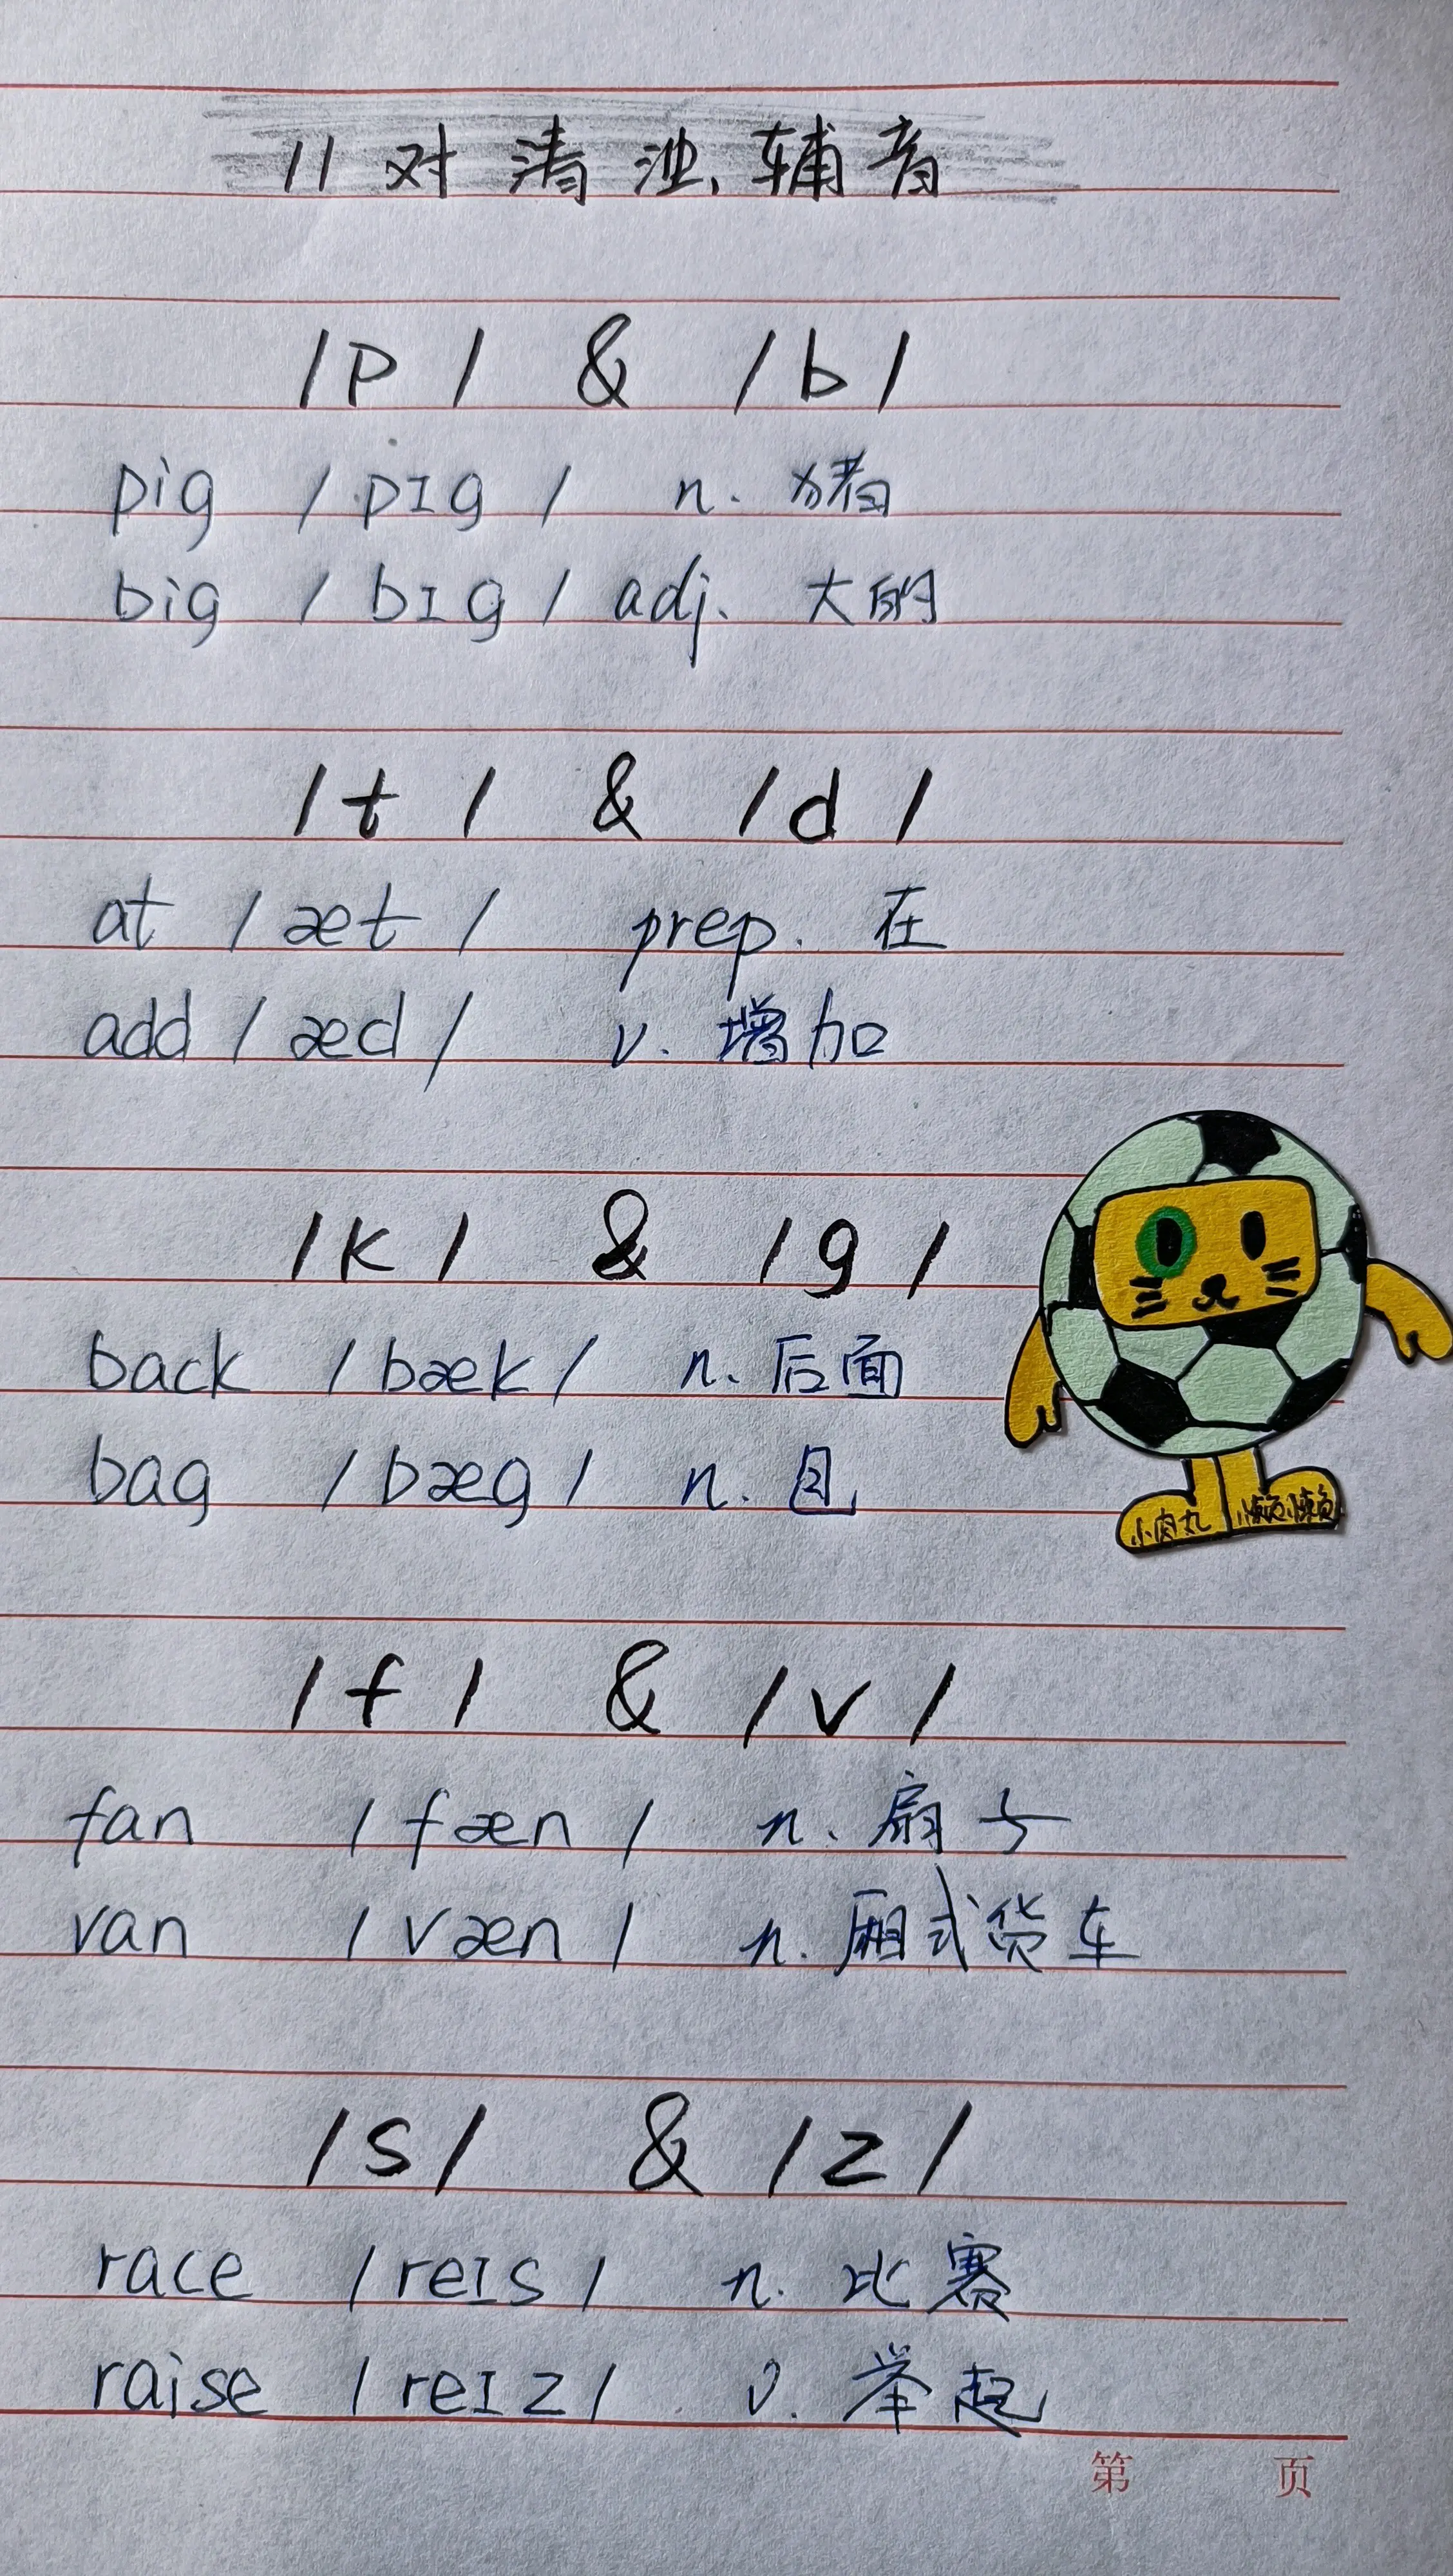 11对清浊辅音
/p/ & /b/
pig /pɪg/ n. 猪
big /bɪg/ adj. 大的
/t/ & /d/
at /æt/ prep. 在
add /æd/ v. 增加
/k/ & /g/
back /bæk/ n. 后面
bag /bæg/ n. 包
小肉丸 懒懒
/f/ & /v/
fan /fæn/ n. 扇子
van /væn/ n. 厢式货车
/s/ & /z/
race /reɪs/ n. 比赛
raise /reɪz/ v. 举起
第 页